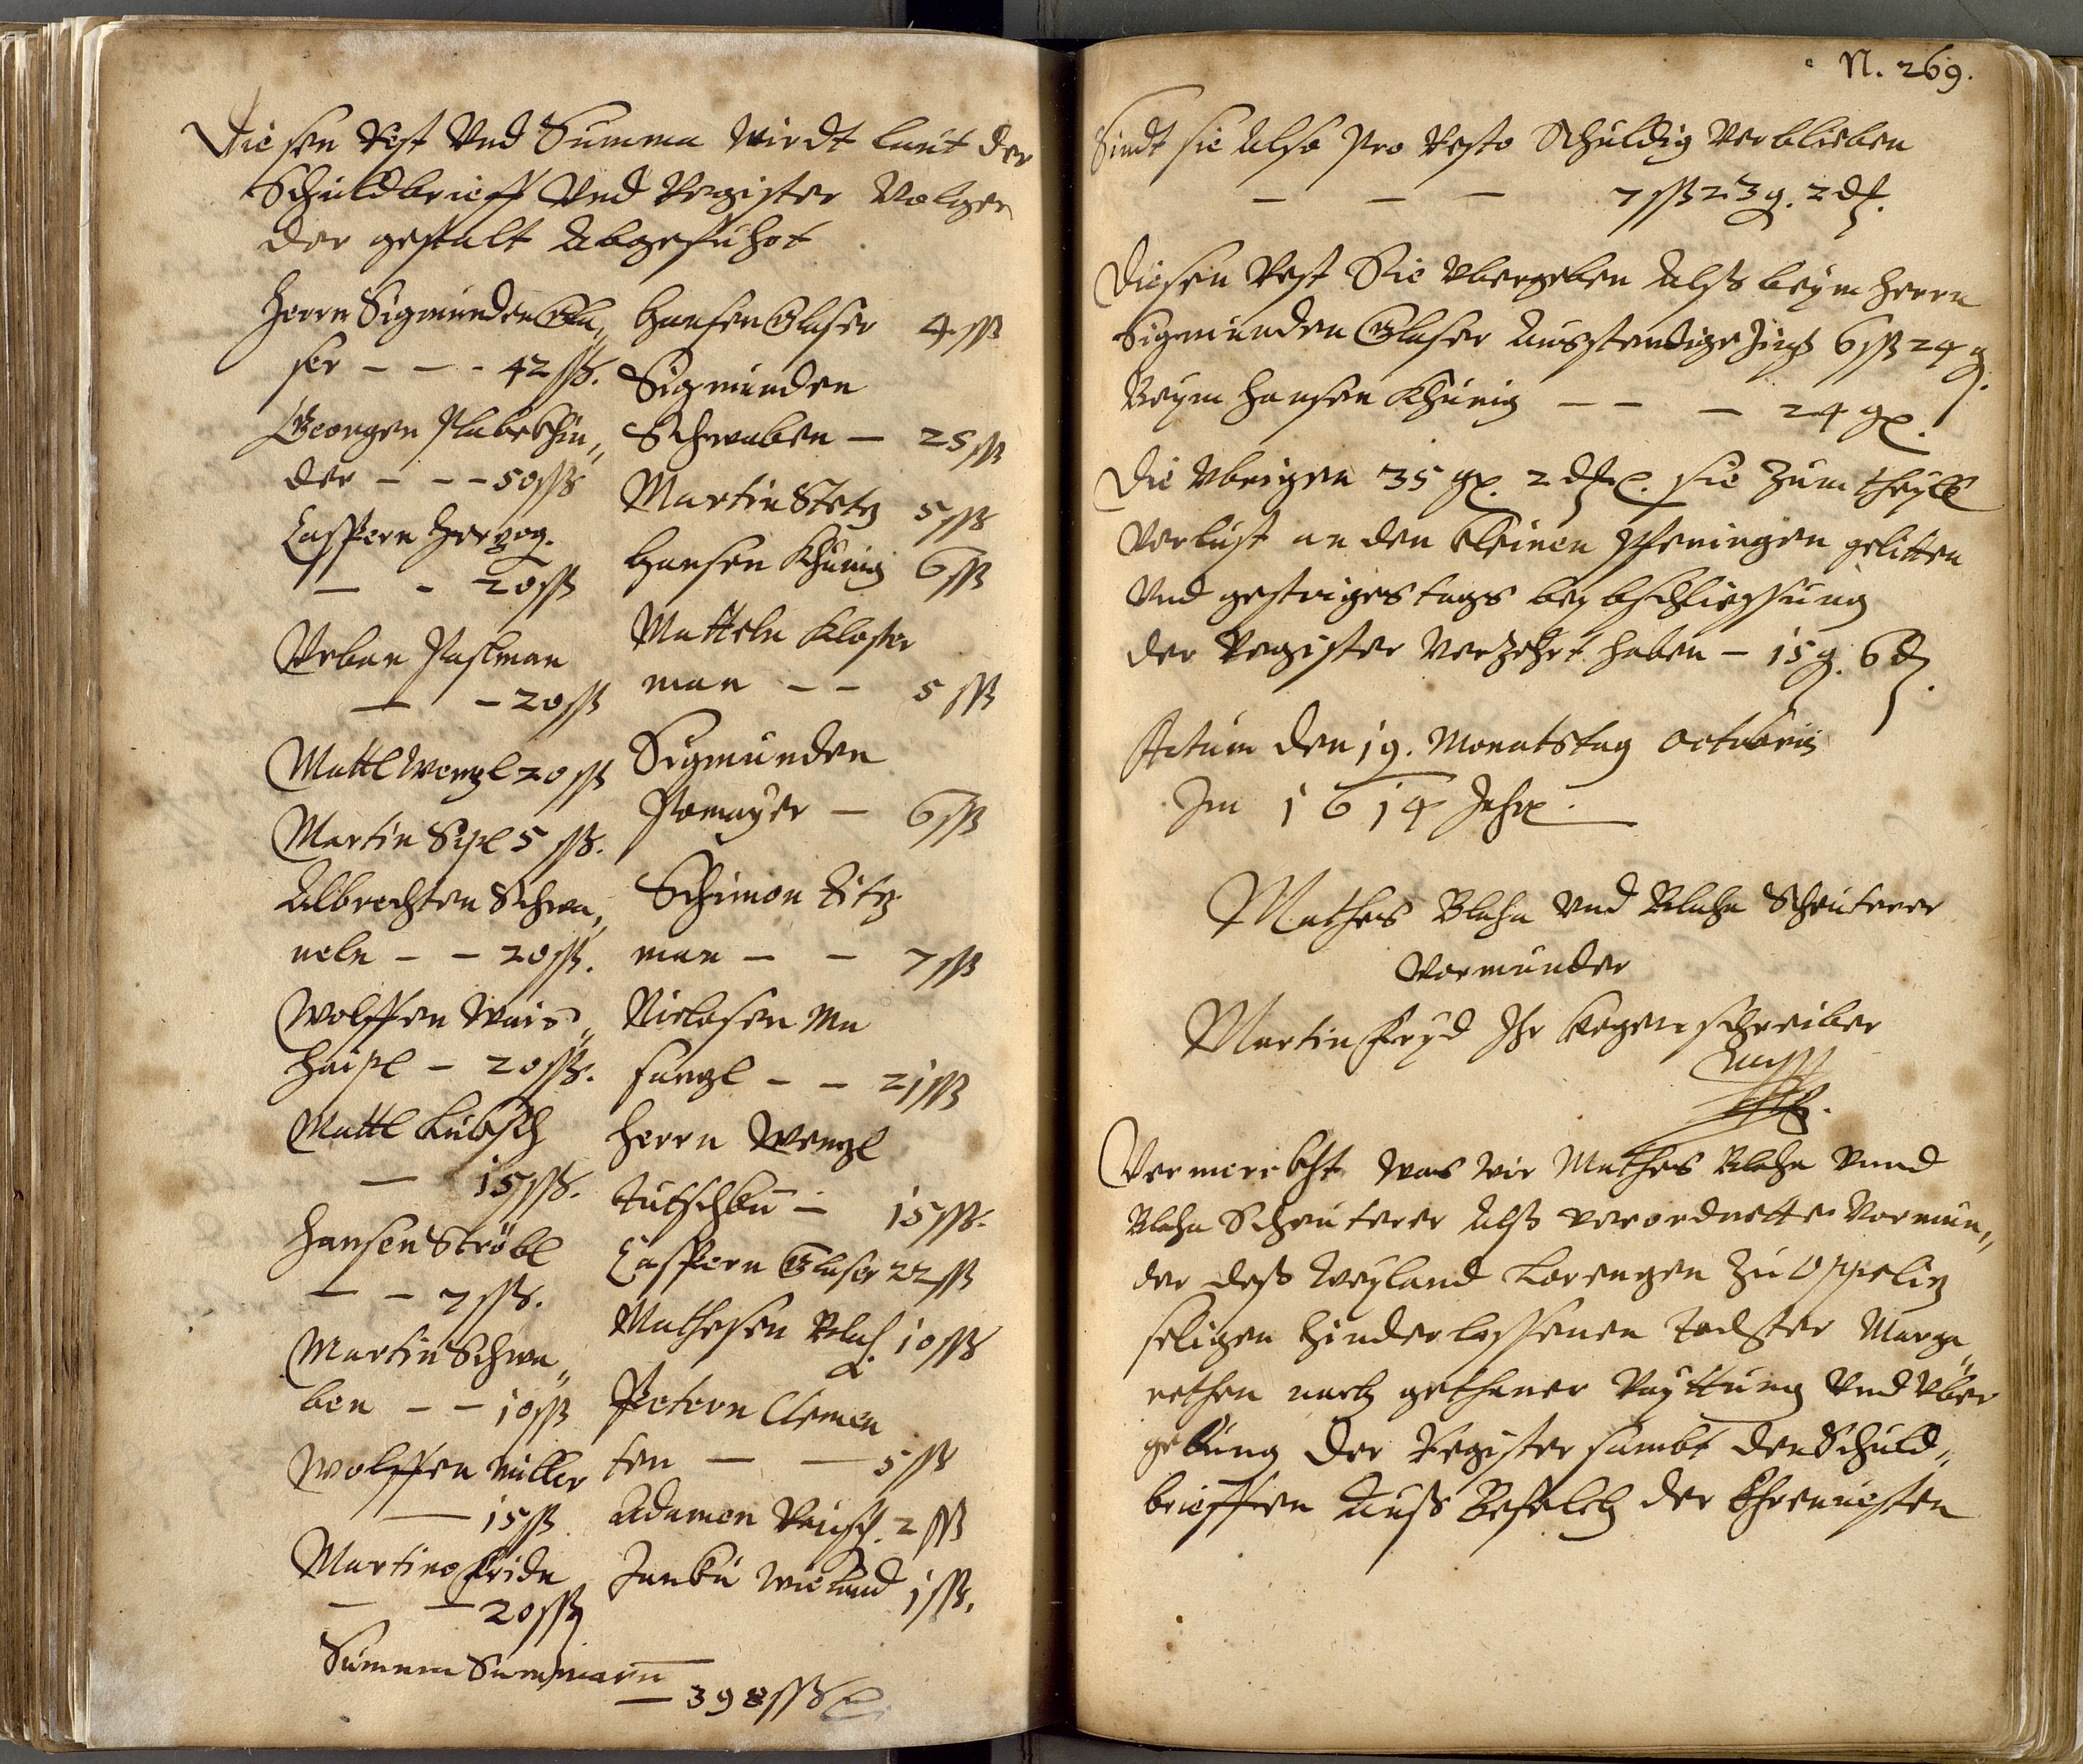 Diesen Rest Vnd Summa wirdt laut der
Schuldbrieff Vnd Register Volgen
der gestalt Abgefuhrt
Herrn Sigmunden Gla„
ser - - - 42 ßß.
Georgen
der - - - 50 ßß
Casspern Herzog.
— - 20 ßß
Vrban Paslman
— - 20 ßß
Mattl Wenzl 20 ßß
Martin Sipl 5 ßß.
Albrechten Schwa„
neln - - 20 ßß.
Wolffen Wais„
haipl - 20 ßß.
Mattl Kubsch
— 15 ßß.
Hansen Ströbl
— - 7 ßß.
Martin Schwa„
ben - - 10 ßß
Wolffen Miller
— 15 ßß
Martino Fride
— — 20 ßß
Hansen Glaser 4 ßß
Sigmunden
Schwaben — 25 ßß
Martin Stetz 5 ßß
Hansen Khunig 6 ßß
Matteln Kloster
man - - 5 ßß
Sigmunden
Pomayer — 6 ßß
Schimon Zitz
man - - 7 ßß
Niclosen Ma
sanzl - - 21 ßß
Herrn Wenzl
Tutschku - 15 ßß.
Casspern Glaser 22 ßß
Mathesen Blah 10 ßß
Petern Clemen
ten — — 5 ßß
Adamen Rausch 2 ßß
Janku Wieland 1 ßß.
Summa Summarum
— 398 ßß
N. 269.
Sindt sie Also Pro Resto Schuldig Verblieben
— — — 7 ßß 23 g. 2 d.
Diesen Rest Sie Vbergeben Alß beym Herrn
Sigmunden Glaser Ausstendige Zinß 6 ßß 24 g.
Beym Hansen Khunig — — — 24 g.
Die Vbrigen 35 g. 2 d. sie zum theyll
Verlust an den kleinen Pfeningen gelitten
Vnd gestriges tags bey bschliessung
der Register Verzehrt haben — 15 g. 6 d.
Actum den 19. Monatstag Octobris
Im 1614 Jahr.
Mathes Blaha Vnd Blaha Scheuterer
Vormunder
Martin Fryd Ihr Gegenschreiber
Vermerckht Was wir Mathes Blaha Vnnd
Blaha Scheuterer Alß verordnette Vormun„
der deß Weyland Lorenzen zu Oppolitz
seligen Hinderlassenen Tochter Marga„
rethen nach gethaner Rayttung Vnd Vber
gebung der Register sambt den Schuld„
brieffen Auß Befelch der Ehrnuesten